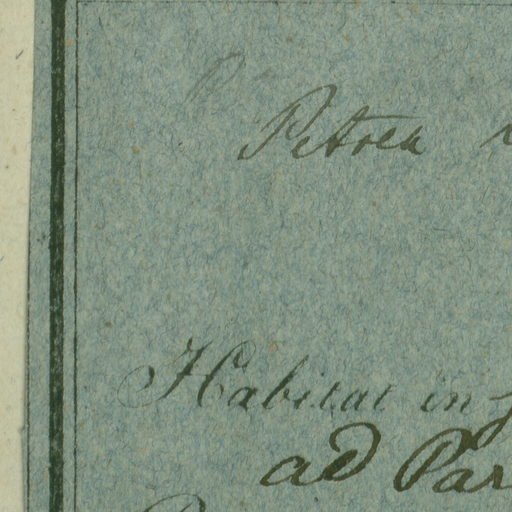 Petrea
Habitat in
ad Par